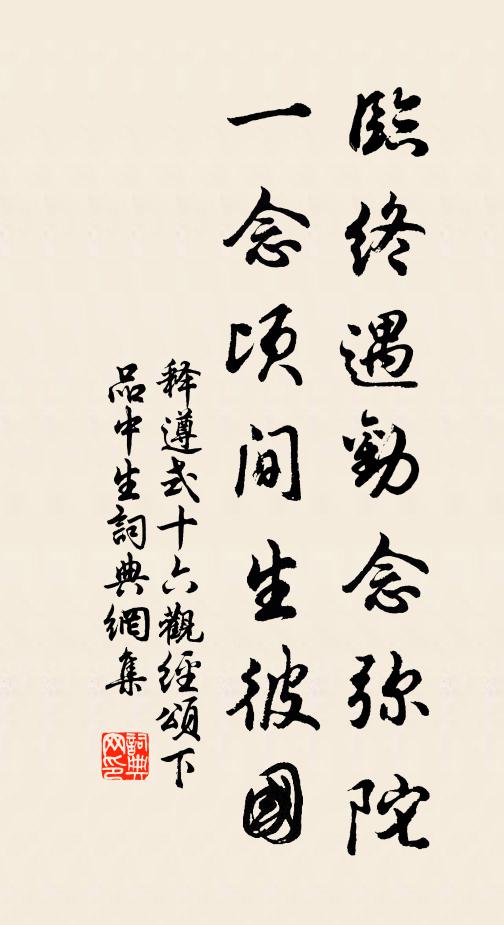 臨終遇勸念弥陀
一念頃間生彼國
釋遵式十六觀經頌下
品中生詞典網集
詞典
网印